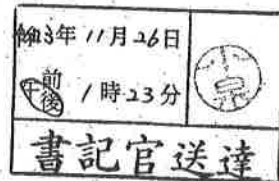 3年11月26日
午前後1時23分
書記官送達